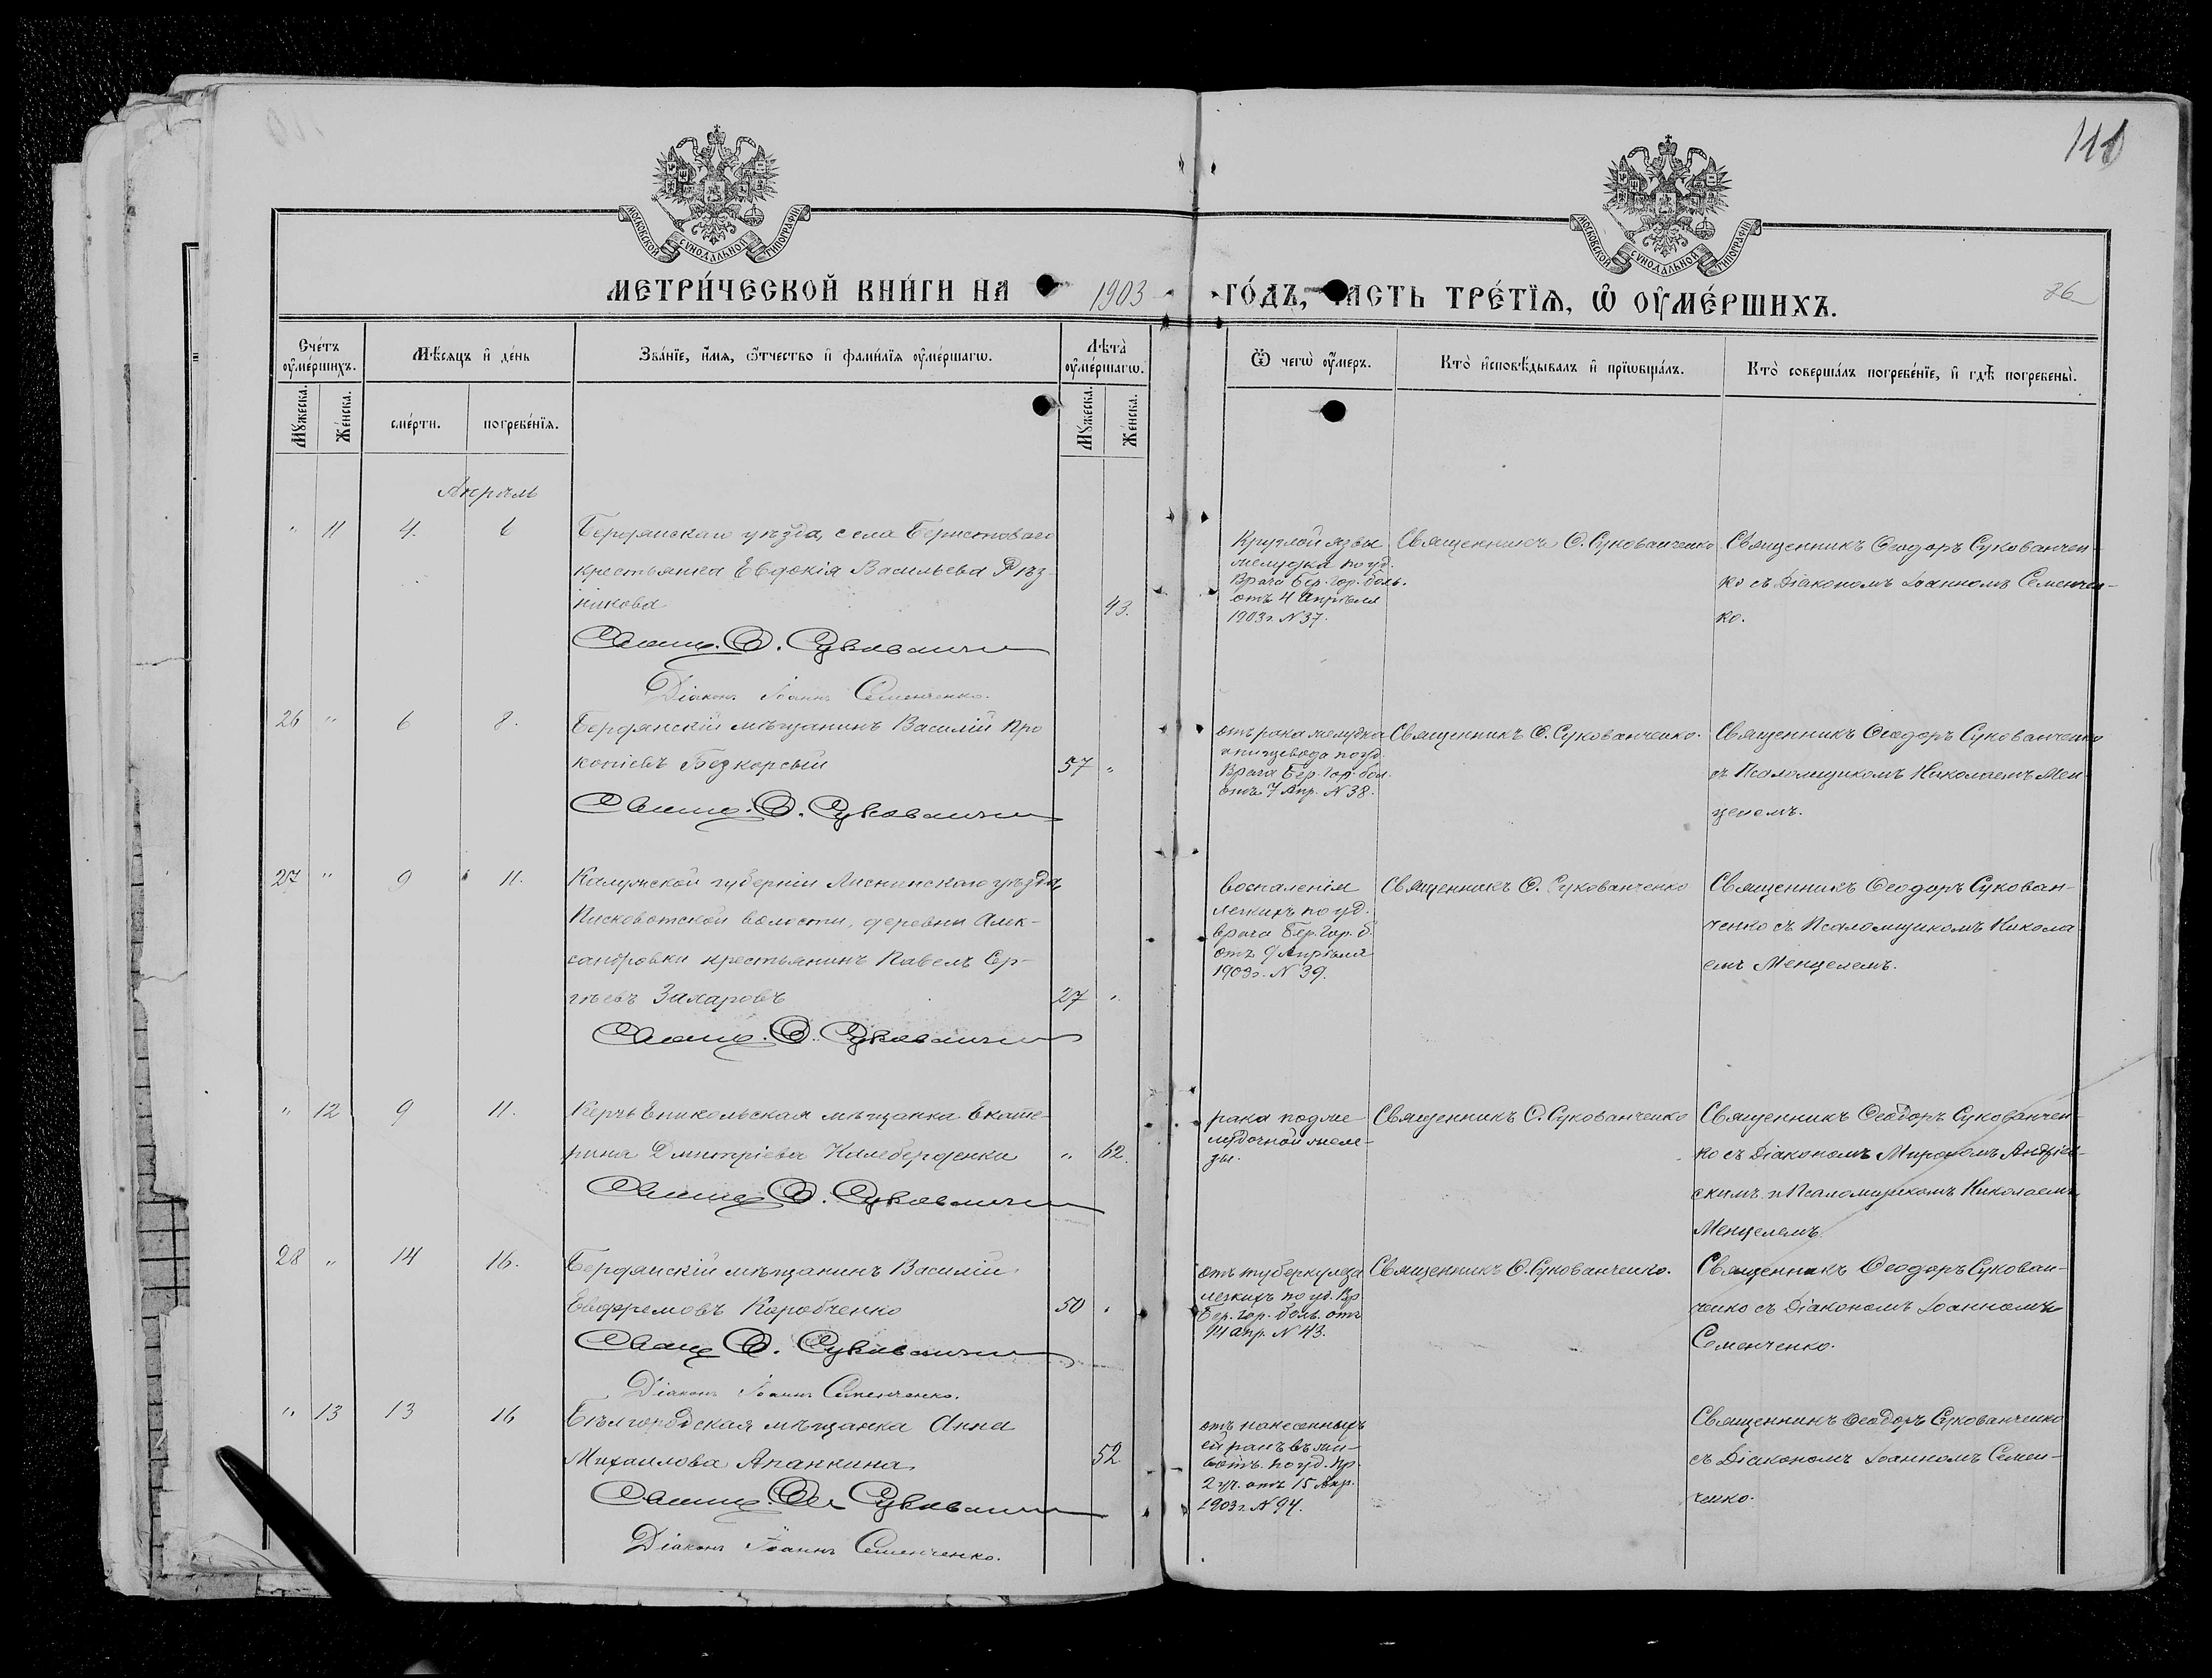 111
МОСКОВСКОЙ СУНОДАЛЬНОЙ ТИПОГРАФІИ
МОСКОВСКОЙ СУНОДАЛЬНОЙ ТИПОГРАФІИ
МЕТРИ́ЧЕСКОЙ КНИ́ГИ НА 1903 ГО́ДЪ, ЧАСТЬ ТРЕ́ТІѦ, Ѡ ОУ҆МЕ́РШИХЪ.
26
Сче́тъ оу҆ме́ршихъ.
Мѣ́сѧцъ и҆ де́нь
Зва́нїе, и҆́мѧ, ѻ҆́тчество и҆ фами́лїѧ оу҆ме́ршагѡ.
Лѣта̀ оу҆ме́ршагѡ.
Ѿ чегѡ̀ оу҆́меръ.
Кто̀ и҆сповѣ́дывалъ и҆ прїѡбща́лъ.
Кто̀ соверша́лъ погребе́нїе, и҆ гдѣ̀ погребены̀.
Мꙋ́жеска.
Же́нска.
сме́рти.
погребе́нїѧ.
Мꙋ́жеска.
Же́нска.
Апрѣль
" 11 4. 6
Бердянскаго уѣзда, села Берестоваго
крестьянка Евдокія Васильева Рѣз-
никова 43.
Свящ. Ѳ. Сукованченко
Діаконъ Іоаннъ Семенченко.
Круглой язвы
желудка по уд.
Врача Бер. гор. боль.
отъ 4 Апрѣля
1903 г. N 37.
Священникъ Ѳ. Сукованченко
Священникъ Ѳеодоръ Сукованчен-
ко съ Діакономъ Іоанномъ Семенчен-
ко.
26 " 6 8.
Бердянскій мѣщанинъ Василій Про
копіевъ Безкорсый 57 "
Свящ. Ѳ. Сукованченко
отъ рака желудка
и пищевода по уд.
Врача Бер. Гор. бол.
отъ 7 Апр. N 38.
Священникъ Ѳ. Сукованченко.
Священникъ Ѳеодоръ Сукованченко
съ Псаломщикомъ Николаемъ Мен
целемъ.
27 " 9 11.
Калужской губерніи уѣзда,
волости, деревни Алек-
сандровки крестьянинъ Павелъ Сер-
гѣевъ Захаровъ 27 "
Свящ. Ѳ. Сукованченко
воспаленія
легкихъ по уд.
врача Бер. Гор. б.
отъ 9 Апрѣля
1903 г. N 39.
Священникъ Ѳ. Сукованченко
Священникъ Ѳеодоръ Сукован-
ченко съ Псаломщикомъ Никола
емъ Менцелемъ.
" 12 9 11.
Керчь Еникольская мѣщанка Екате-
рина Дмитріева " 62.
Свящ. Ѳ. Сукованченко
рака поджe
лудочной желе-
зы.
Священникъ Ѳ. Сукованченко
Священникъ Ѳеодоръ Сукованчен-
ко съ Діакономъ
скимъ и Псаломщикомъ Николаемъ
Менцелемъ.
28 " 14 16.
Бердянскій мѣщанинъ Василій
Евфремовъ Коробченко 50 "
Свящ. Ѳ. Сукованченко
Діаконъ Іоаннъ Семенченко.
отъ туберкулеза
легкихъ по уд. Вр.
Бер. гор. боль. отъ
14 апр. N 43.
Священникъ Ѳ. Сукованченко.
Священникъ Ѳеодоръ Сукован-
ченко съ Діакономъ Іоанномъ
Семенченко.
" 13 13 16
Бѣлгородская мѣщанка Анна
Михаилова Апанкина 52.
Свящ. Ѳ. Сукованченко
Діаконъ Іоаннъ Семенченко.
отъ нанесенныхъ
ей ранъ въ жи-
вотъ. по уд. Пр.
2 уч. отъ 15 Апр.
1903 г. N 94.
Священникъ Ѳеодоръ Сукованченко
съ Діакономъ Іоанномъ Семен-
ченко.